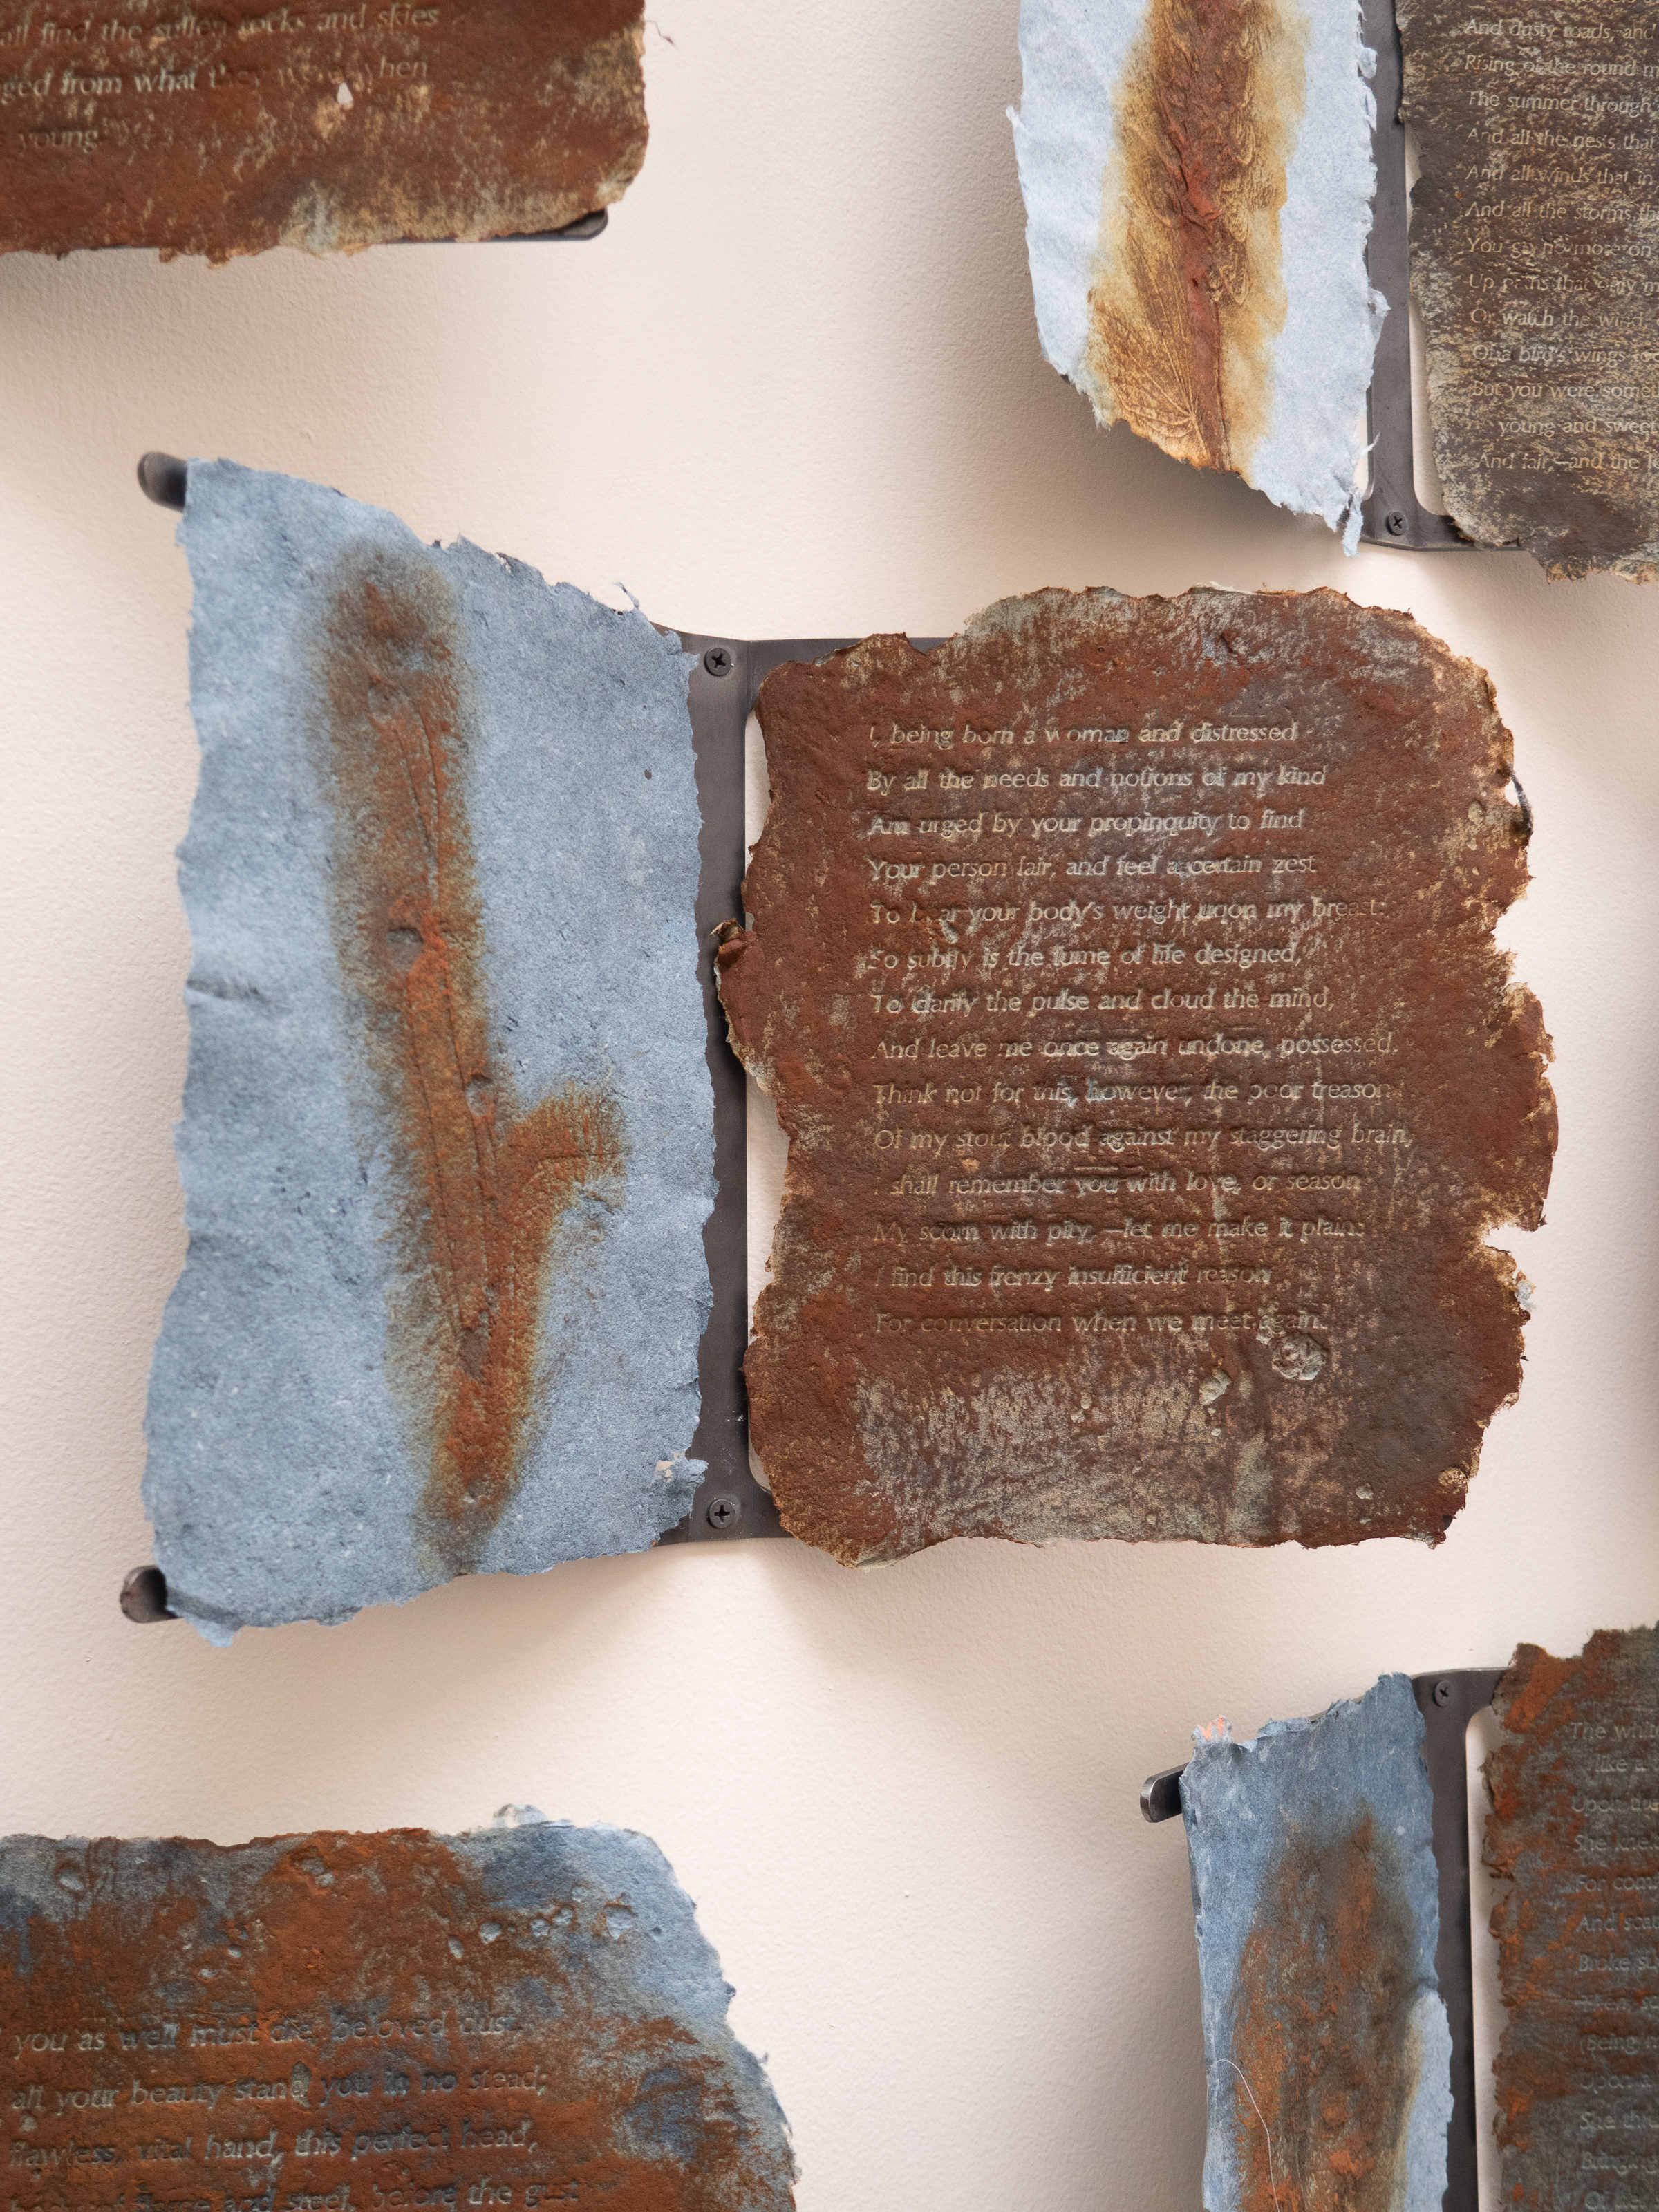 all find the sullen rocks and skies
ged from what they were when
young.
And dusty roads, and
Rising of the round m
The summer through
And all the nests that
And all winds that in
And all the storms th
You go no more on
Up paths that only m
Or watch the wind
On a bird's wings too
But you were somet
young and sweet
And fair,—and the lo
I, being born a woman and distressed
By all the needs and notions of my kind
Am urged by your propinquity to find
Your person fair, and feel a certain zest
To bear your body's weight upon my breast:
So subtly is the fume of life designed,
To clarify the pulse and cloud the mind,
And leave me once again undone, possessed.
Think not for this, however, the poor treason
Of my stout blood against my staggering brain,
I shall remember you with love, or season
My scorn with pity, —let me make it plain:
I find this frenzy insufficient reason
For conversation when we meet again.
you as well must die, beloved dust,
all your beauty stand you in no stead;
flawless, vital hand, this perfect head,
body of flame and steel, before the gust
The whit
like a
Upon the
She knew
For com
And scat
Broke su
Then, s
(Being
Upon it
She thre
Bringing